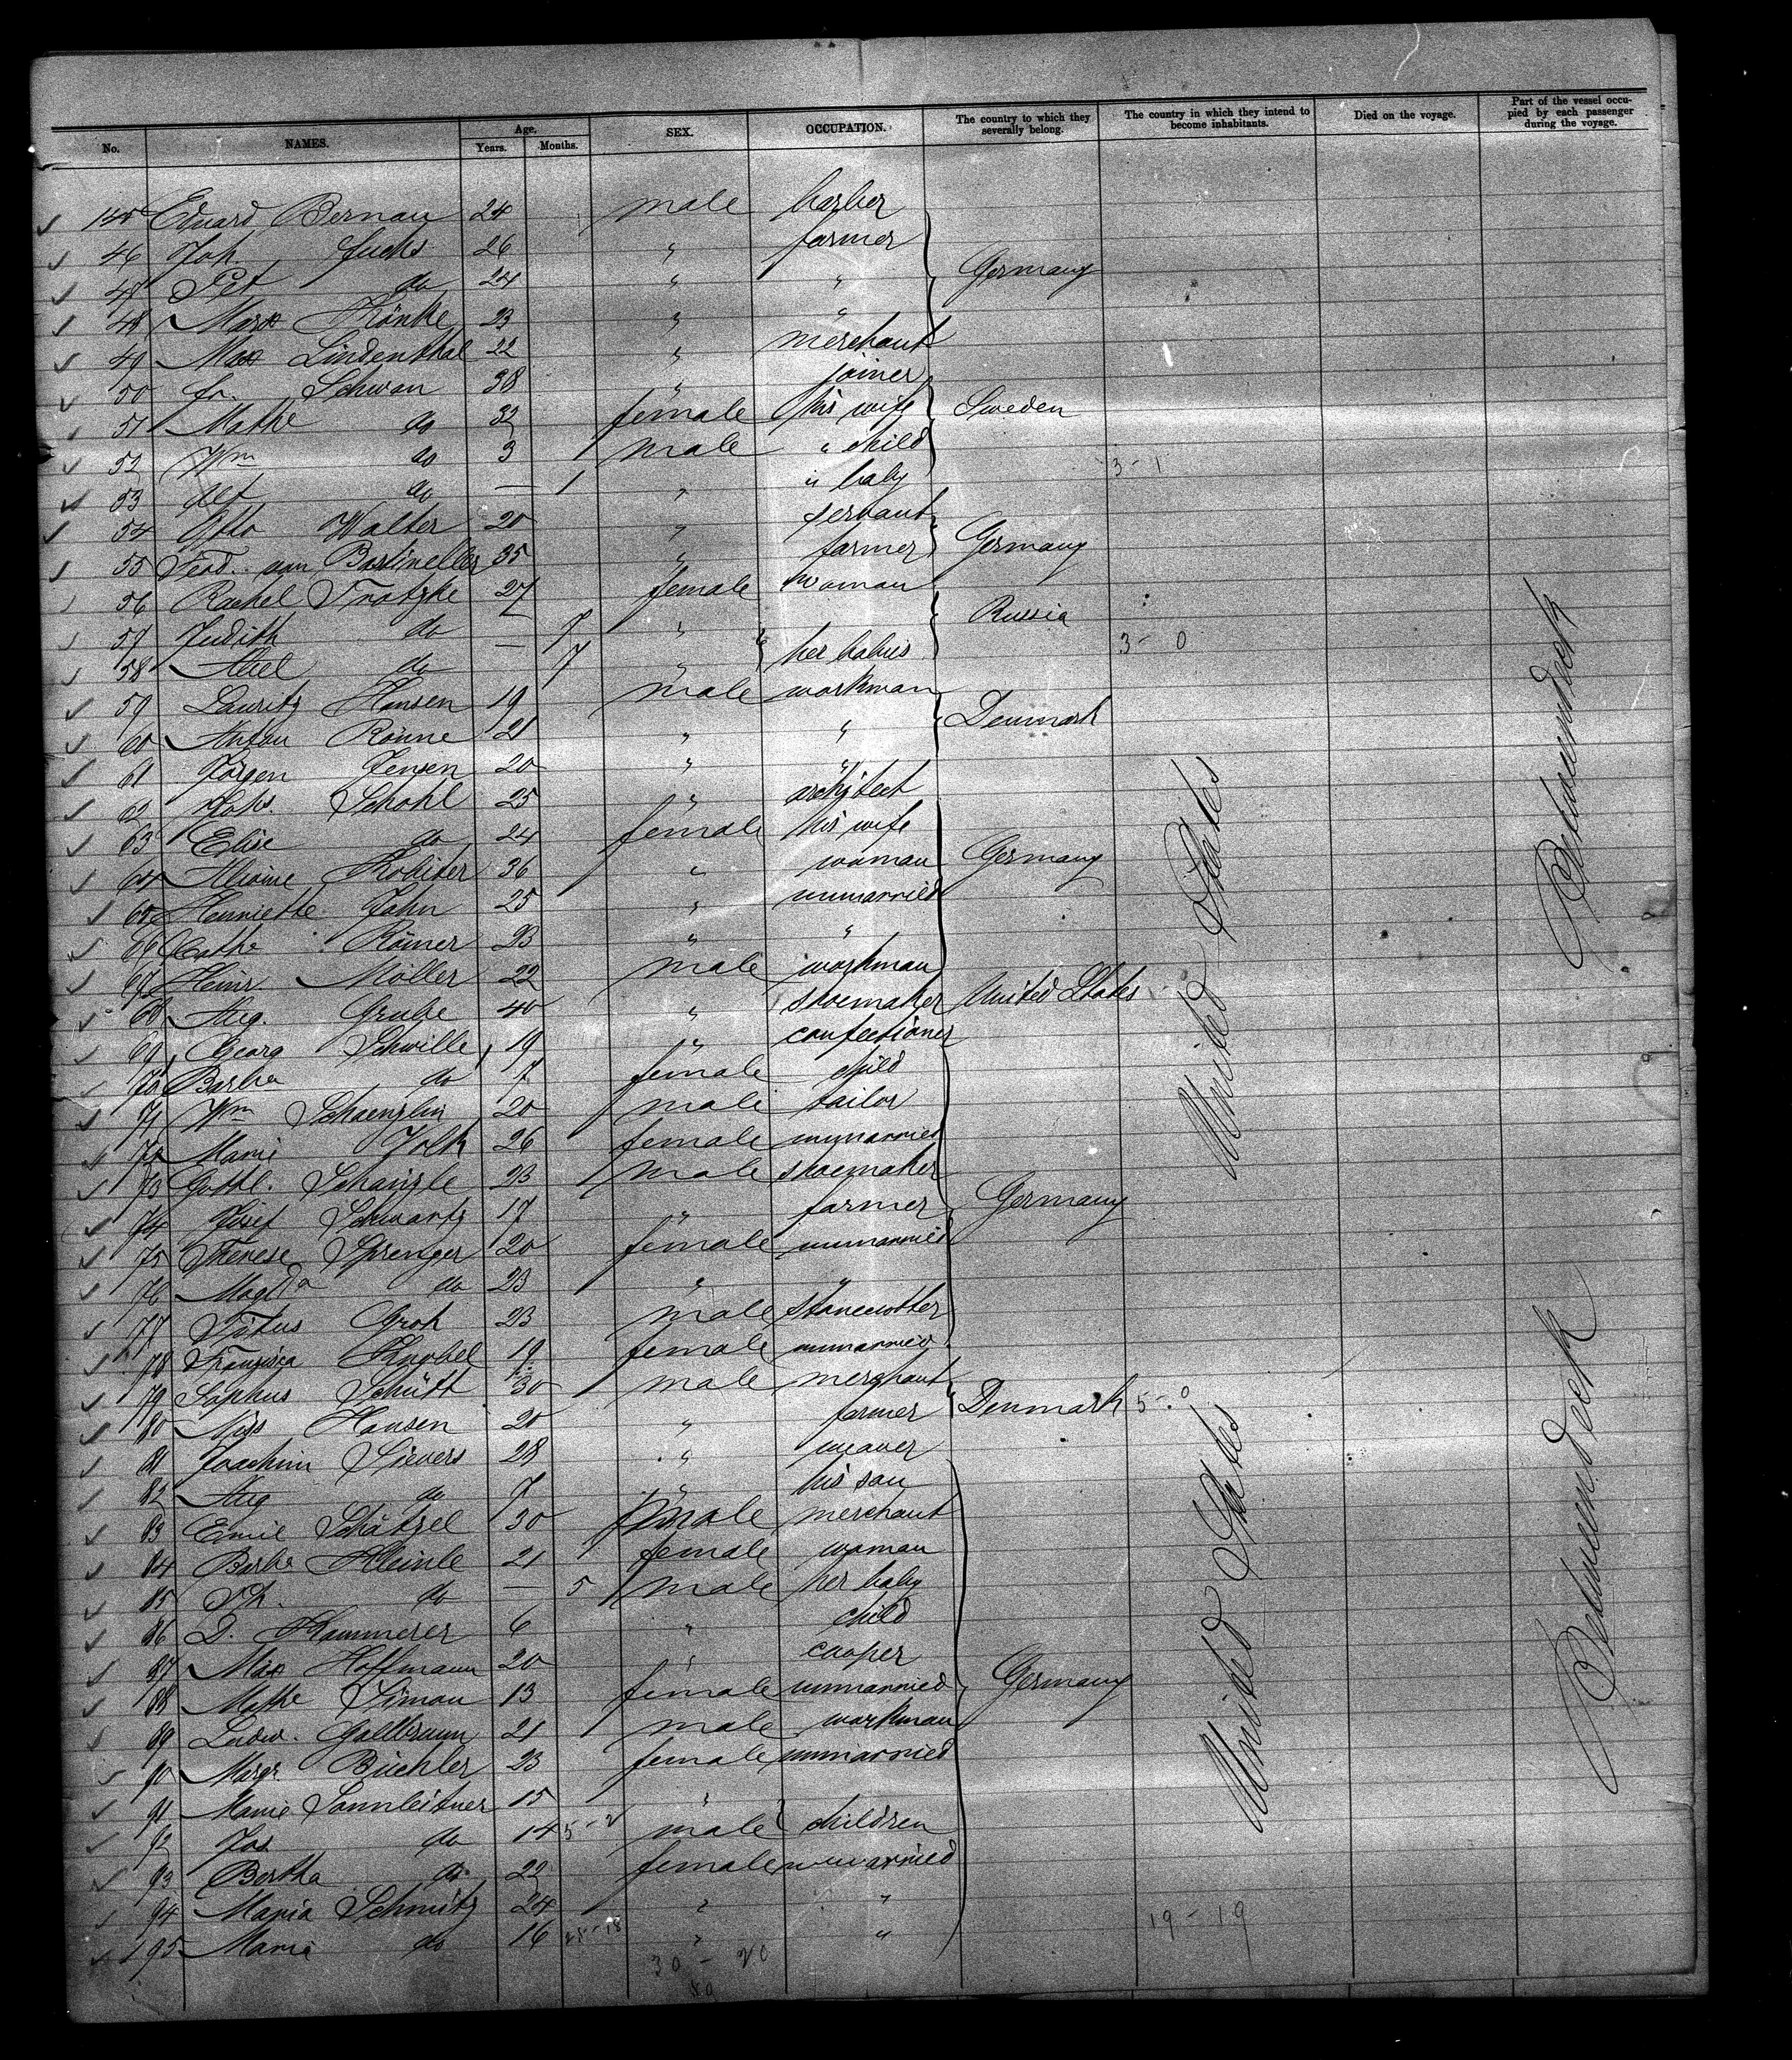 No. NAMES. Age. Years. Months. SEX. OCCUPATION. The country to which they severally belong. The country in which they intend to become inhabitants. Died on the voyage. Part of the vessel occupied by each passenger during the voyage.
145 Eduard Bernau 24 male barber
46 Joh. Fuchs 26 " farmer
47 Pet do 24 " " Germany
48 Marx 23 " "
49 Max Lindenthal 22 " merchant
50 Schwan 38 " joiner
51 Mathe do 32 female his wife Sweden
52 Wm do 3 male " child 3-1
53 Alf do — 1 " " baby
54 Otto Walter 20 " servant
55 Ferd. von 35 " farmer Germany
56 Rachel Trotzke 27 female woman
57 Judith do — 7 " Russia
58 Abel do 7 " her babies 3-0
59 Lauritz Hansen 19 male workman
60 Anton Rönne 21 " " Denmark
61 Jörgen Jensen 20 " "
62 Johs. Schohl 25 " architect
63 Elise do 24 female his wife
64 36 " woman Germany
65 Henriette Jahn 25 " unmarried
66 Cathe Römer 23 " "
67 Heinr Möller 22 male workman
68 Aug. Grube 40 " shoemaker United States
69 Georg Schwille 19 " confectioner
70 Barba do 7 female child
71 Wm Schaenzlin 20 male tailor
72 Marie Volk 26 female unmarried
73 Gottl. Schaizle 23 male shoemaker
74 Josef Schwartz 17 " farmer Germany
75 Therese Sprenger 20 female unmarried
76 Magda do 23 " "
77 Titus Groh 23 male stonecutter
78 Franzisca Knobel 19 female unmarried
79 Sophus Schütt 30 male merchant
80 Niss Hansen 20 " farmer Denmark 5-0
81 Joachim Sievers 28 " weaver
82 Aug do 7 " his son
83 Emil Schätzel 30 male merchant
84 Barba Kleinle 21 female woman
85 do — 5 male her baby
86 D. Kammerer 6 " child
87 Max Hoffmann 20 " cooper
88 Mathe Simon 13 female unmarried Germany
89 Ludw. 21 male workman
90 Margr. Büchler 23 female unmarried
91 Marie Sonnleitner 15 "
92 Jos do 14 5-2 male children
93 Bertha do 22 female unmarried
94 Maria Schmitz 24 " "
195 Maria do 16 " " 19-19
30 - 20
United States
United States